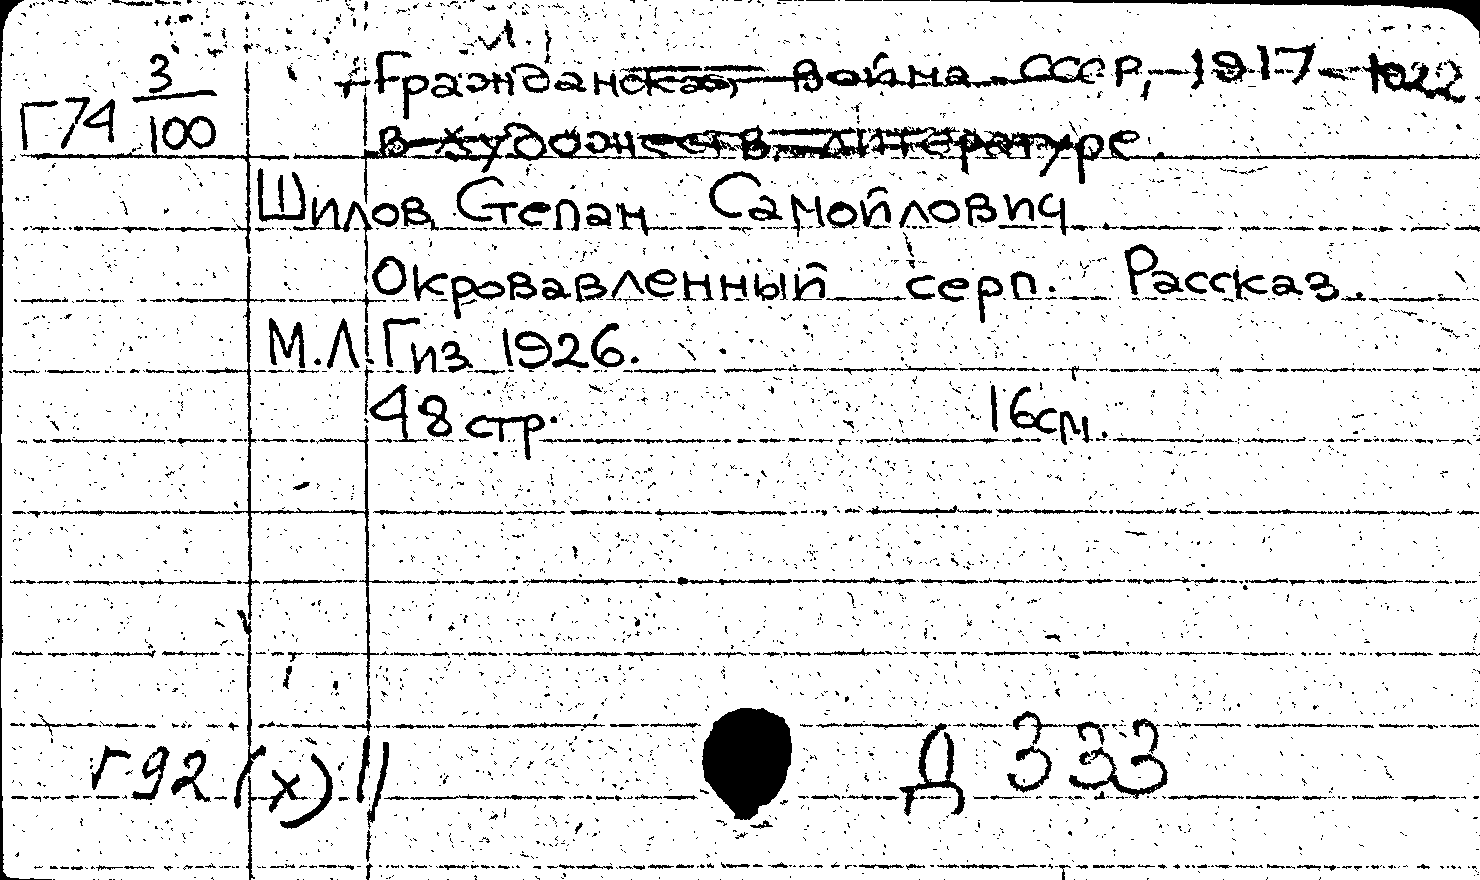 Г74 3/100
+ Гражданская война СССР, 1917-1922
в художеств. литературе.
Шилов, Степан Самойлович
Окровавленный серп. Рассказ.
М.Л. Гиз 1926.
48 стр. 16 см.
Г92 (х) ||
Д 333